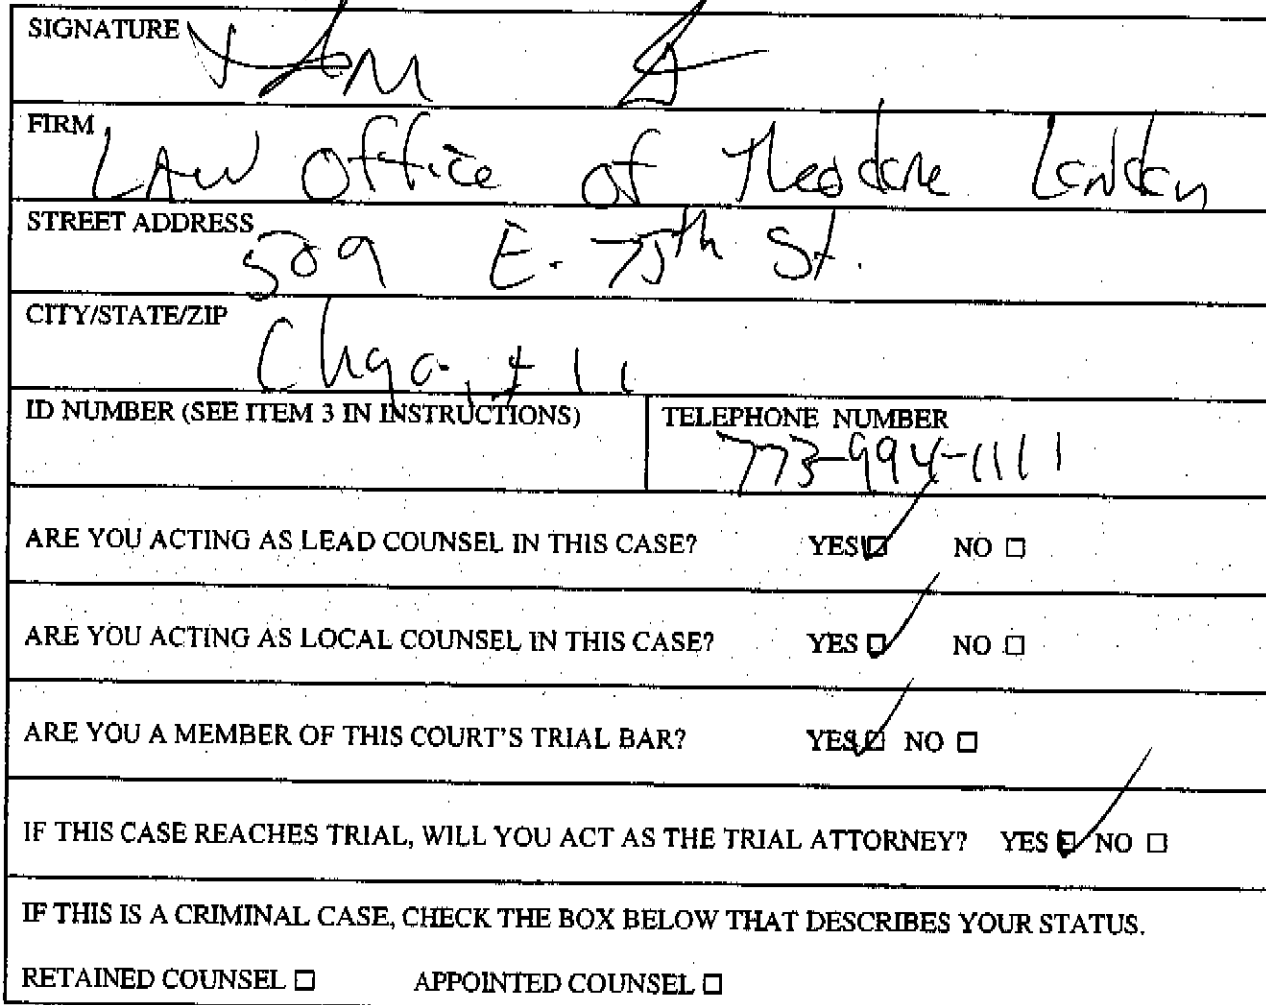 SIGNATURE
FIRM Law Office of Theodore London
STREET ADDRESS 509 E. 75th St.
CITY/STATE/ZIP Chgo, Ill
ID NUMBER (SEE ITEM 3 IN INSTRUCTIONS) TELEPHONE NUMBER 773-994-1111
ARE YOU ACTING AS LEAD COUNSEL IN THIS CASE? YES NO
ARE YOU ACTING AS LOCAL COUNSEL IN THIS CASE? YES NO
ARE YOU A MEMBER OF THIS COURT'S TRIAL BAR? YES NO
IF THIS CASE REACHES TRIAL, WILL YOU ACT AS THE TRIAL ATTORNEY? YES NO
IF THIS IS A CRIMINAL CASE, CHECK THE BOX BELOW THAT DESCRIBES YOUR STATUS.
RETAINED COUNSEL APPOINTED COUNSEL